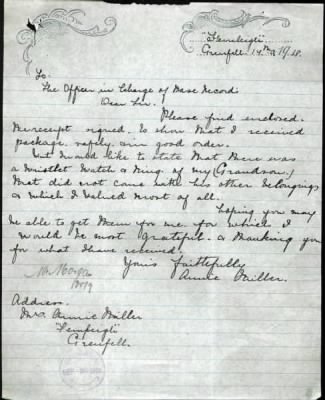 "Fernleigh"
Grenfell. 14th 9/18.
To
The Officer in Charge of Base Record
Dear Sir.
Please find enclosed.
the receipt signed. to show that I received
package, safely. & in good order.
but I would like to state that there was
a Wristlet Watch & Ring of my (Grandson)
that did not come with his other belongings
& which I valued most of all.
hoping you may
be able to get them for me. for which I
would be most grateful. & thanking you
for what I have received.
Yours faithfully
Annie Miller.
Address.
Mrs Annie Miller
Grenfell.